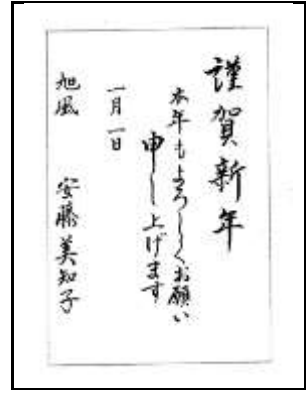 謹賀新年
本年もよろしくお願い
申し上げます
一月一日
旭風 安藤美知子